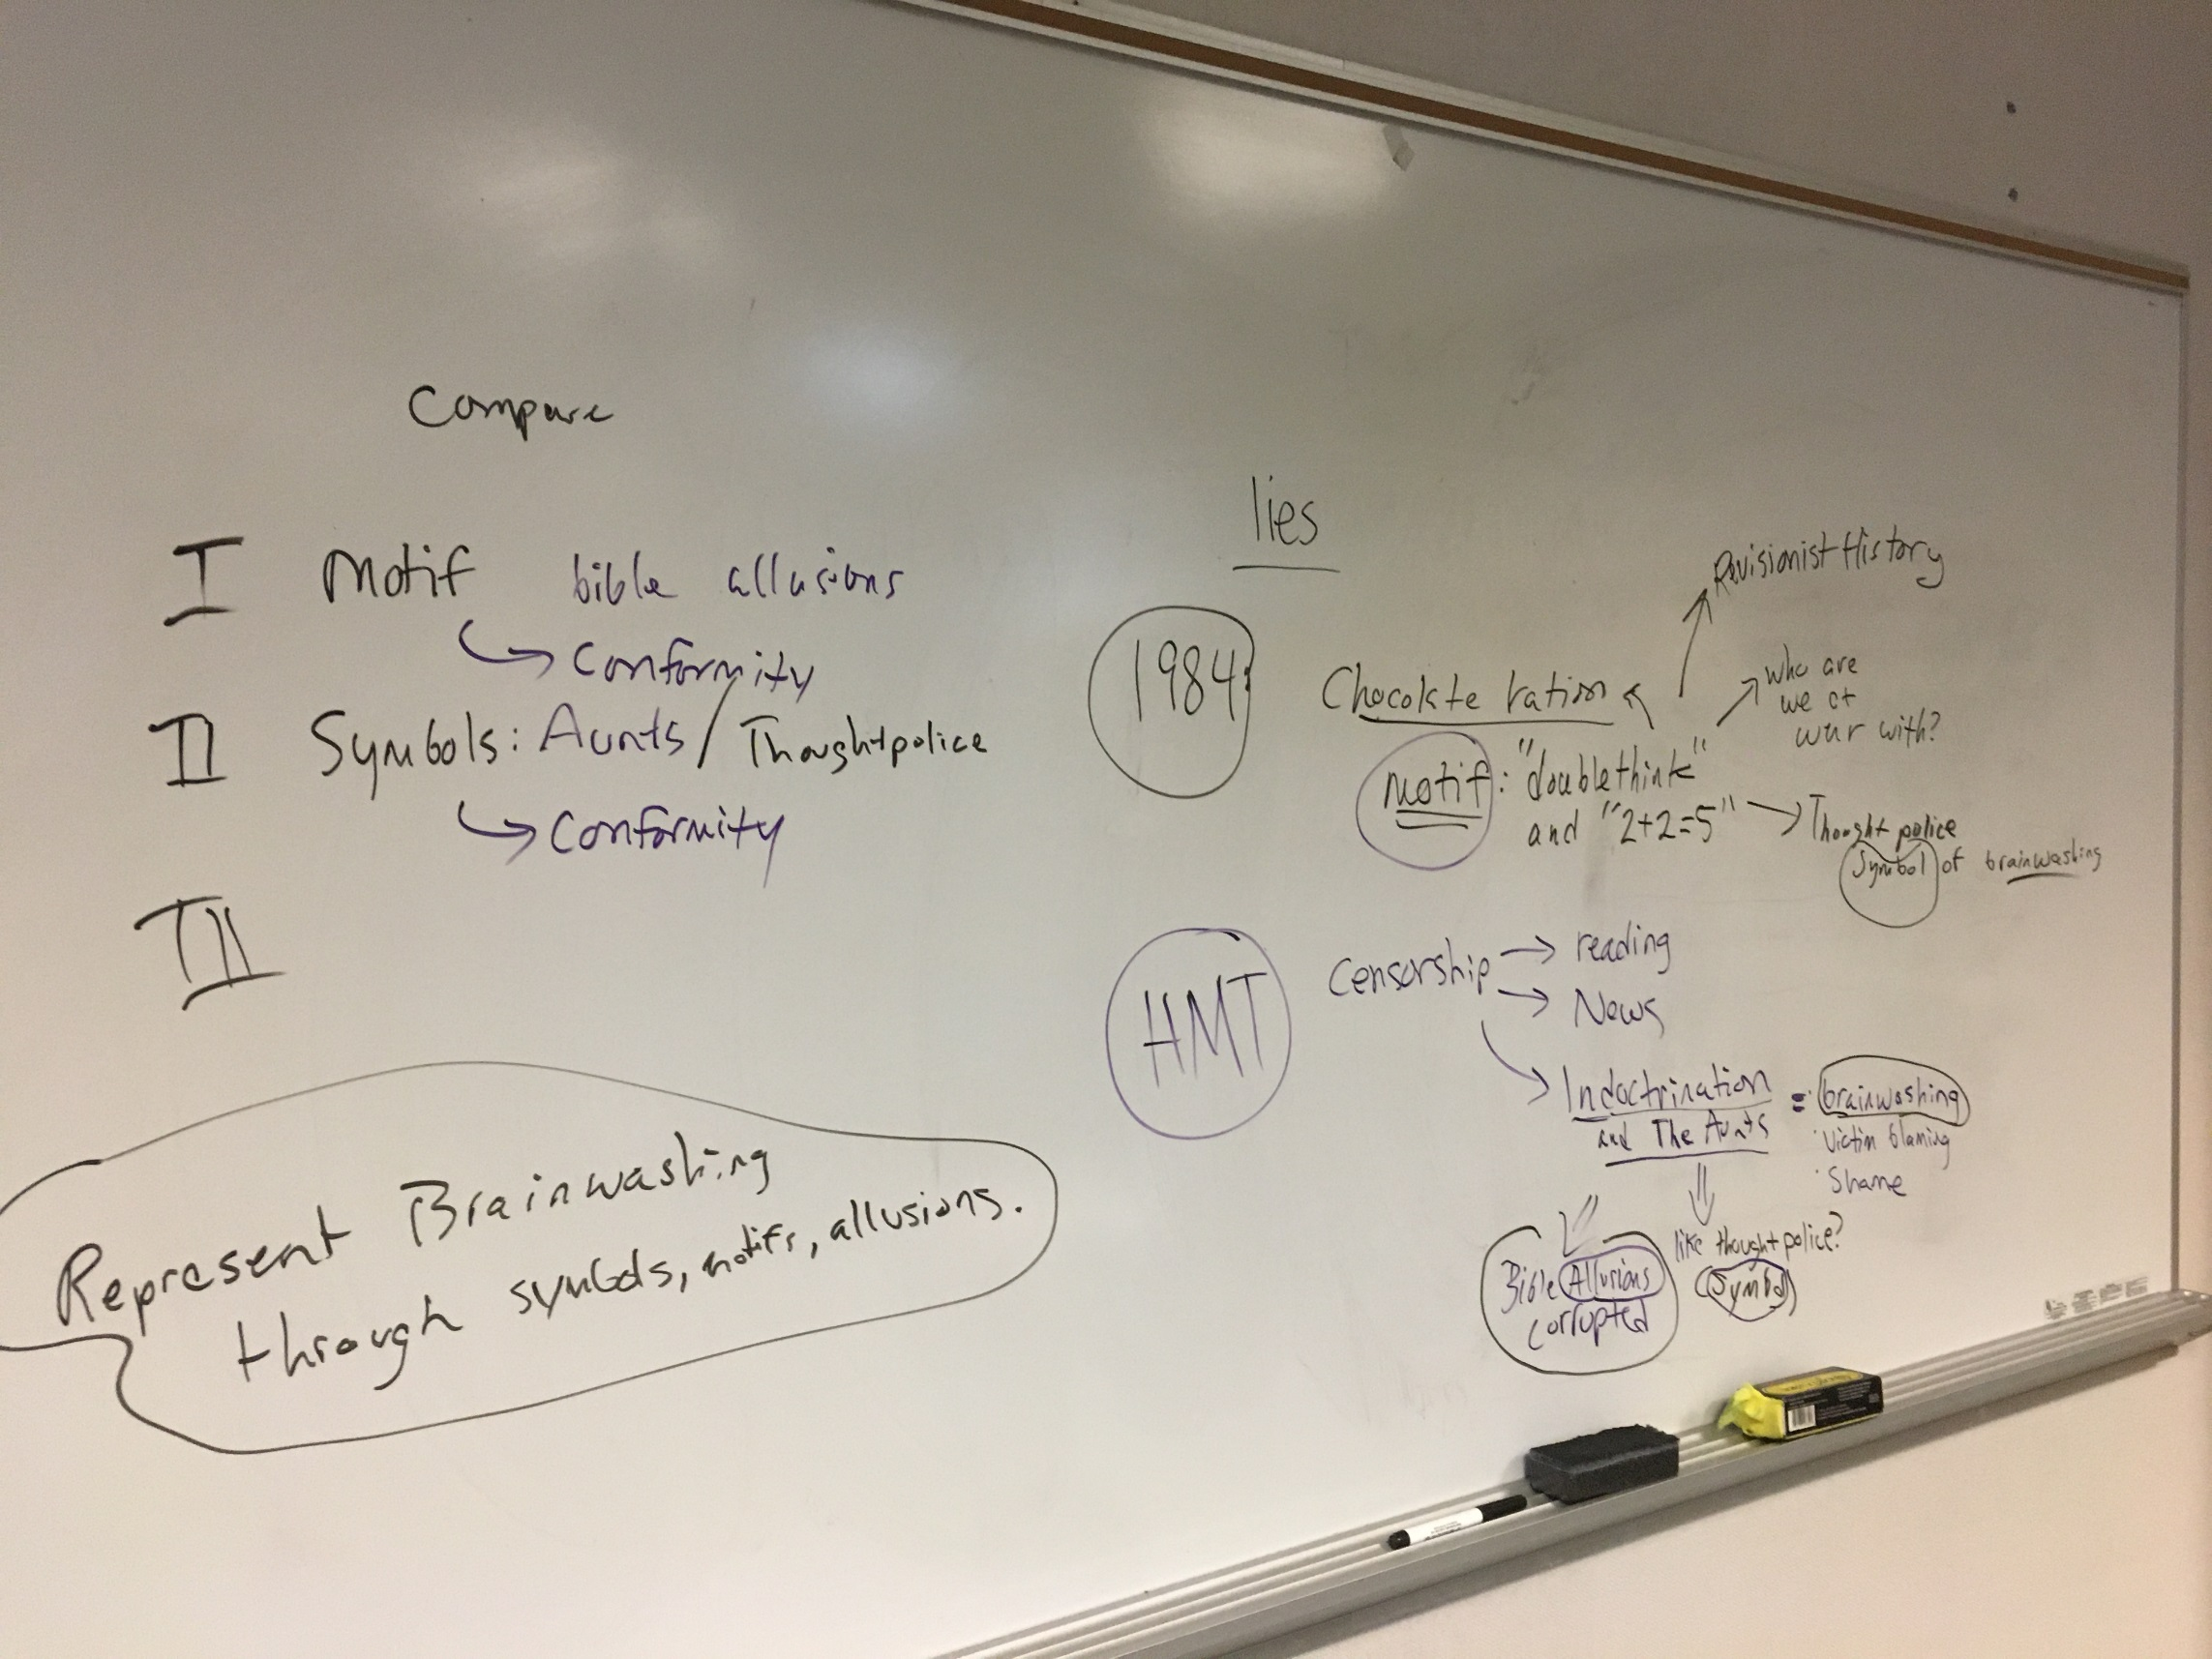 Compare
I Motif bible allusions
Conformity
II Symbols: Aunts / Thoughtpolice
Conformity
III
Represent Brainwashing
through symbols, motifs, allusions.
lies
1984:
Chocolate ration
Revisionist History
who are
we at
war with?
Motif: "doublethink"
and "2+2=5"
Thought police
Symbol of brainwashing
HMT
Censorship
reading
News
Indoctrination
and The Aunts
= brainwashing
· Victim blaming
· Shame
Bible Allusions
corrupted
like thoughtpolice?
(Symbol)